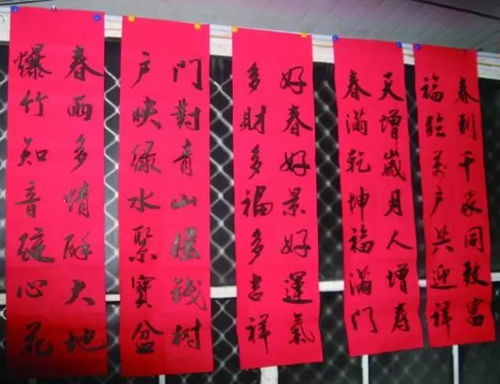 春到千家同致富
福臨萬户共迎祥
天增歲月人增寿
春滿乾坤福滿門
好春好景好運氣
多財多福多吉祥
門對青山摇錢树
户映绿水聚寶盆
春雨多情酥大地
爆竹知音綻心花